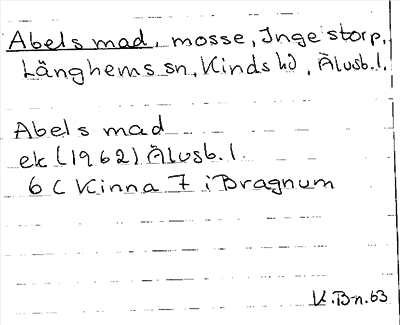 Abels mad, mosse, Ingestorp,
Länghems sn, Kinds hd, Älvsb. l.
Abels mad
ek (1962) Älvsb. l.
6 C Kinna 7 i Bragnum
K. Bn. 63